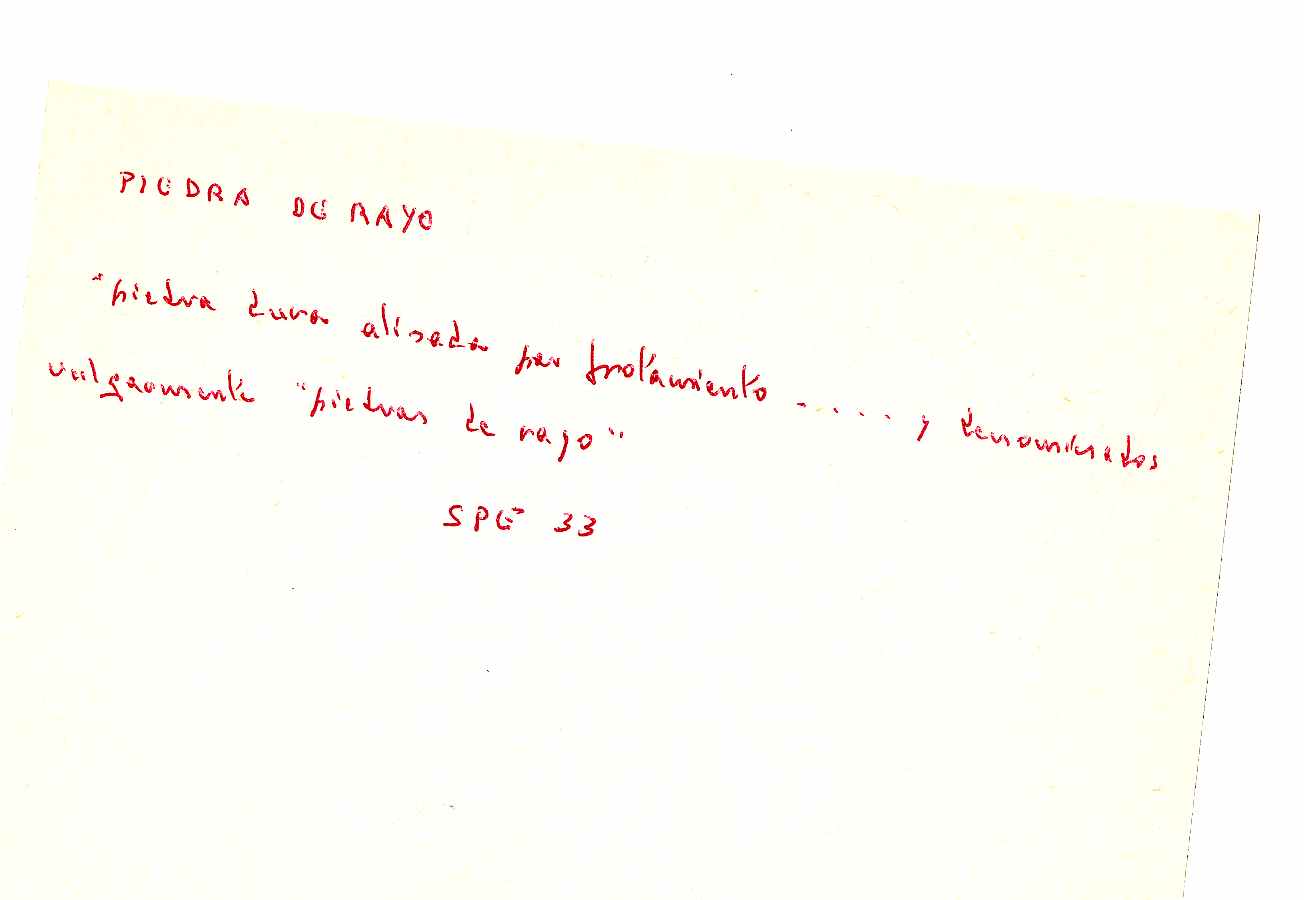 PIEDRA DE RAYO
"piedra dura alisada por frotamiento ..... y denominados
vulgarmente "piedras de rayo"
SPE 33